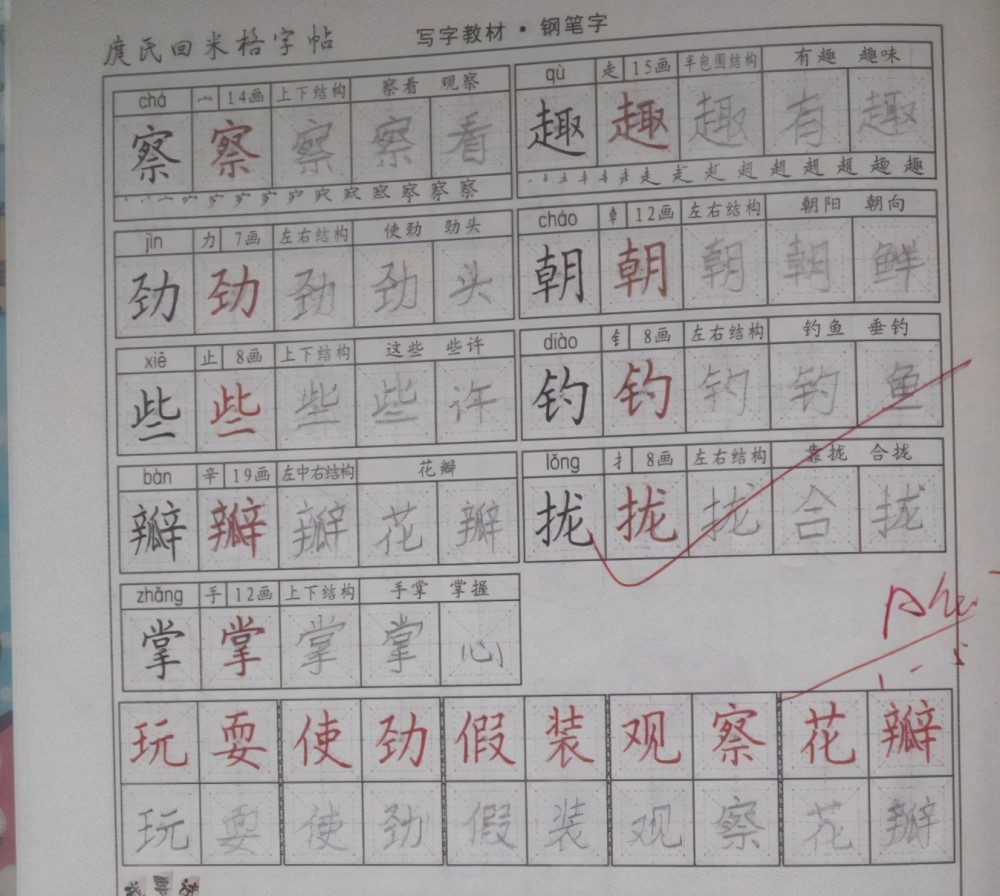 庹氏回米格字帖 写字教材·钢笔字
chá 宀 14画 上下结构 察看 观察
察 察 察 察 看
qù 走 15画 半包围结构 有趣 趣味
趣 趣 趣 有 趣
jìn 力 7画 左右结构 使劲 劲头
劲 劲 劲 劲 头
cháo 12画 左右结构 朝阳 朝向
朝 朝 朝 朝 鲜
xiē 止 8画 上下结构 这些 些许
些 些 些 些 许
diào 钅 8画 左右结构 钓鱼 垂钓
钓 钓 钓 钓 鱼
bàn 辛 19画 左中右结构 花瓣
瓣 瓣 瓣 花 瓣
lǒng 扌 8画 左右结构 靠拢 合拢
拢 拢 拢 合 拢
zhǎng 手 12画 上下结构 手掌 掌握
掌 掌 掌 掌 心
玩 耍 使 劲 假 装 观 察 花 瓣
玩 耍 使 劲 假 装 观 察 花 瓣